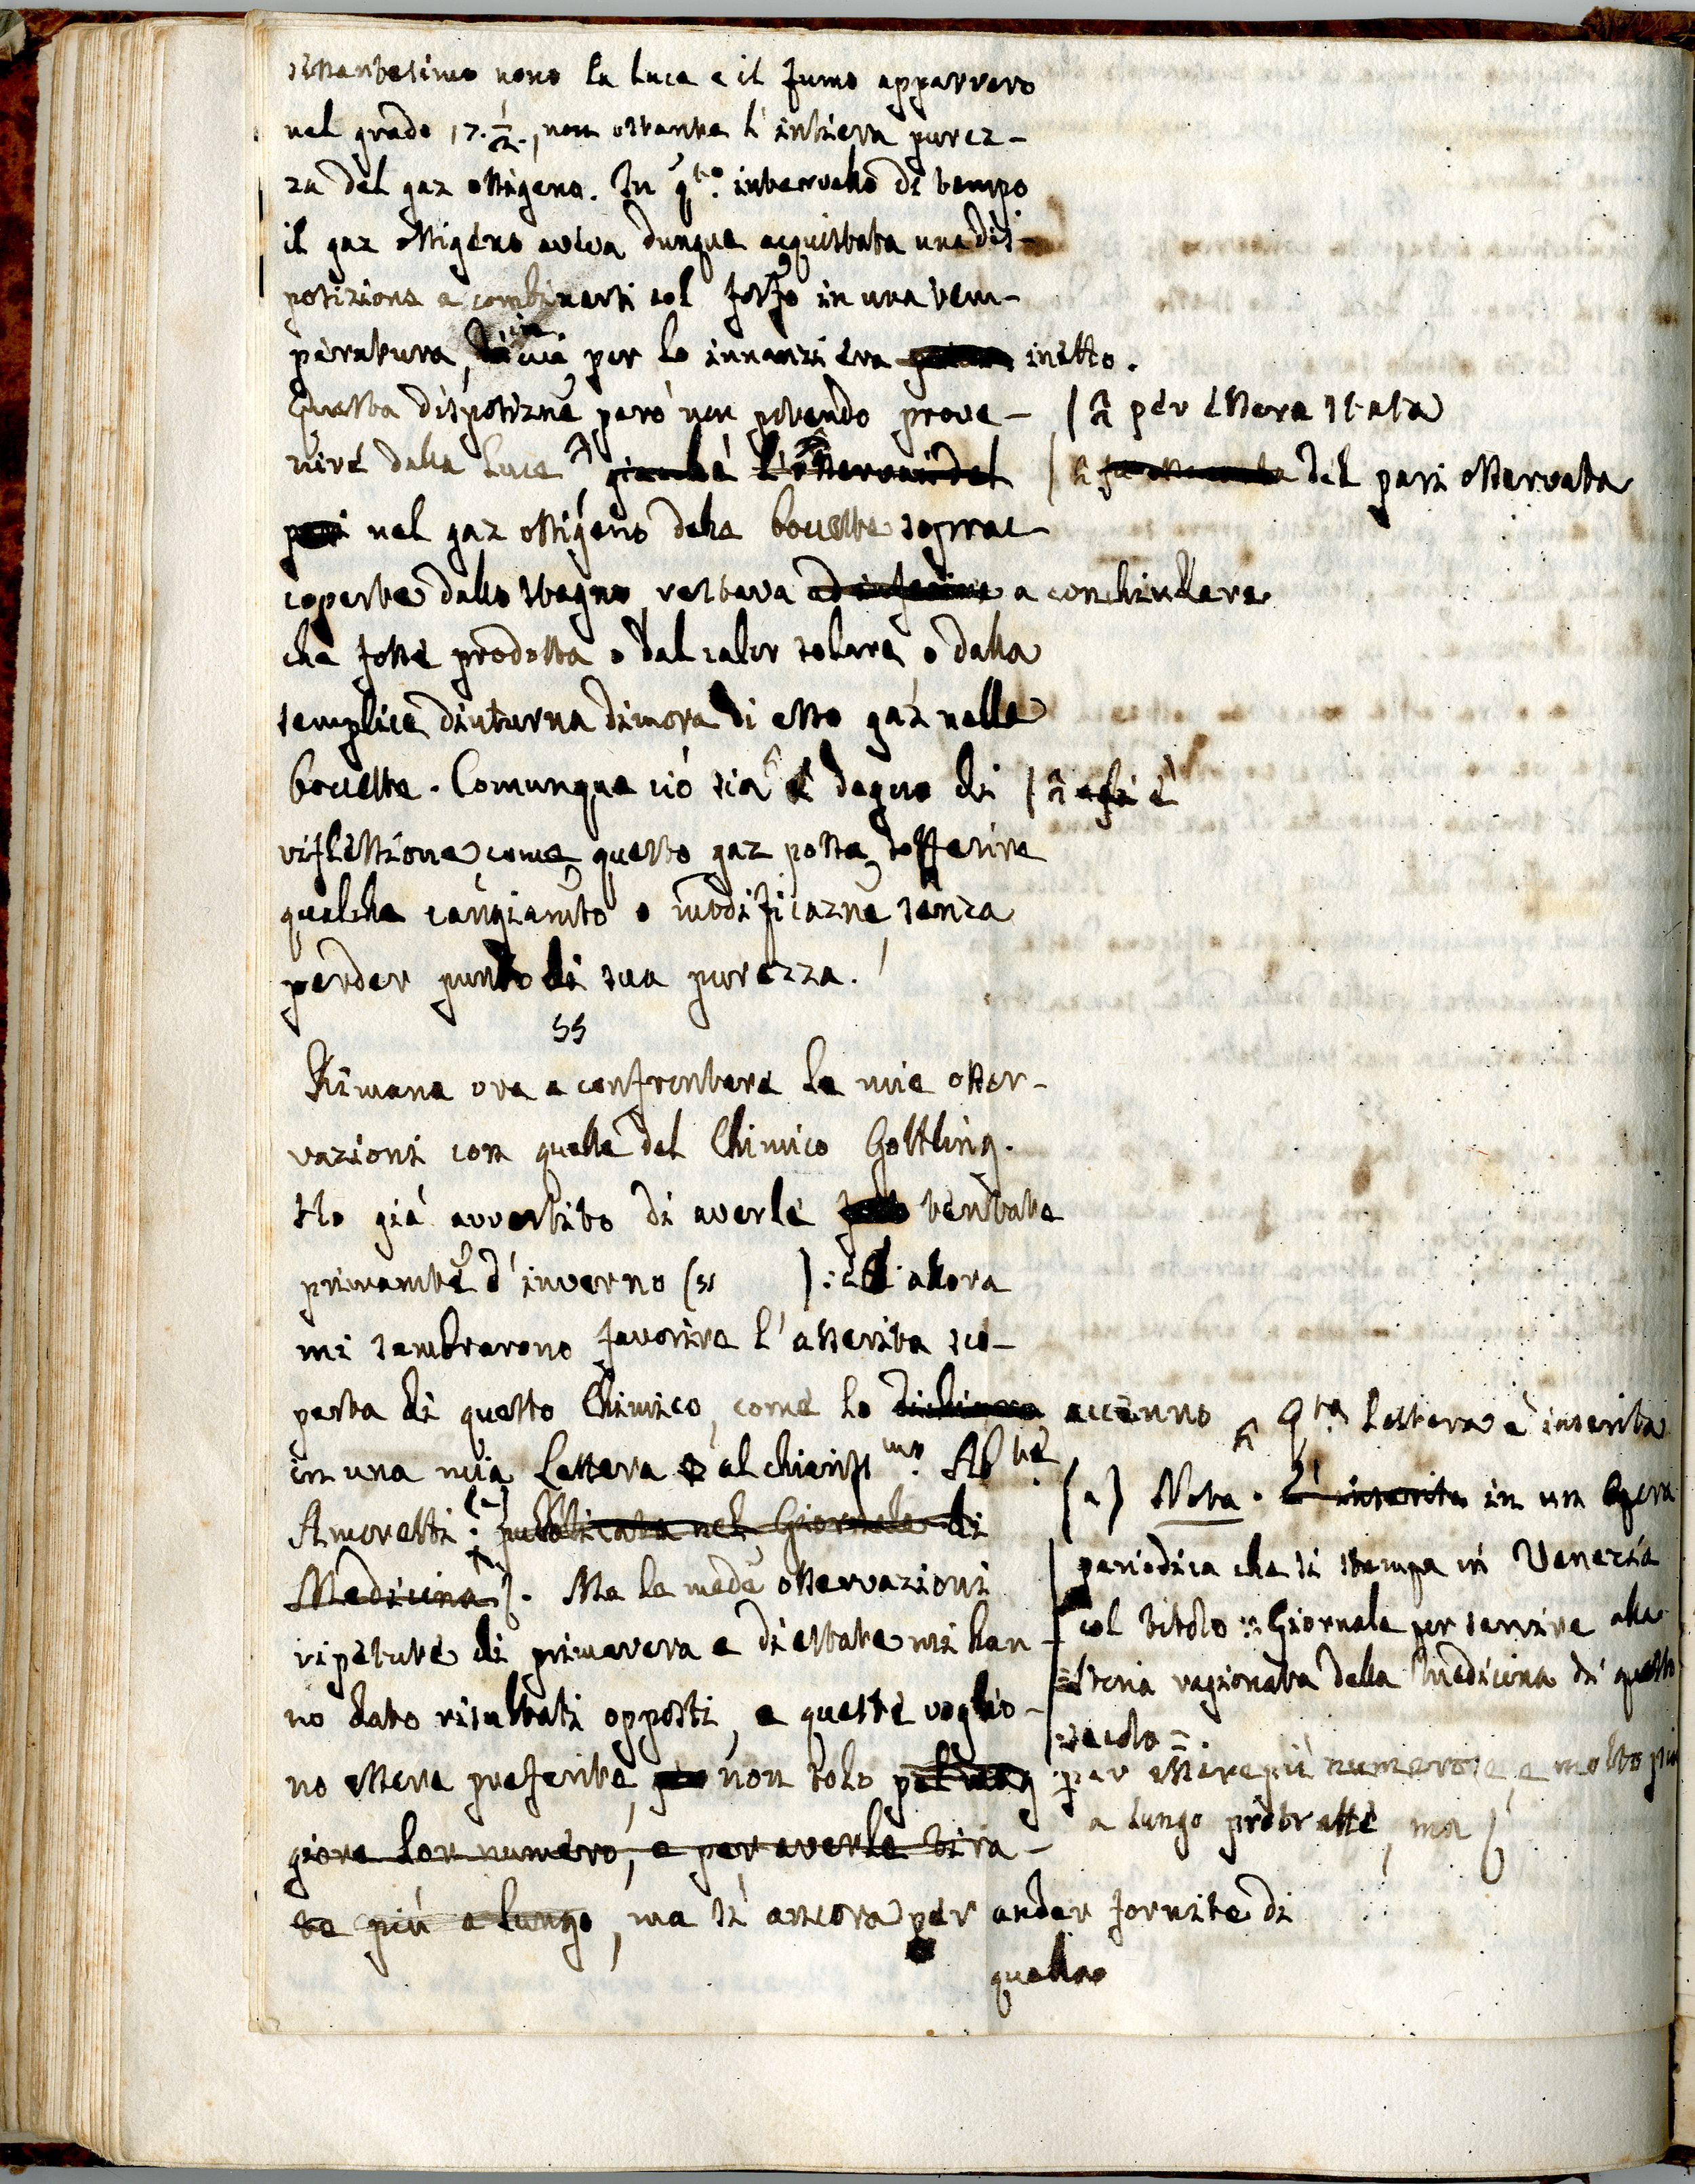 settantesimo nono la luce e il fumo apparvero
nel grado 17. 1/2., non ostante l'intiera purez-
za del gaz ossigeno. In q.to intervallo di tempo
il gaz ossigeno aveva dunque acquistata una dis-
posizione a combinarsi col fosfo in una tem-
peratura, in cui per lo innanzi era inetto.
Questa disposizne però non potendo prove-
nire dalla luce, giacchè l'osservai del
per essere stata
del pari osservata
pari nel gaz ossigeno delle boccette soprac-
coperte dallo stagno, restava ad inferire a conchiudere
che fosse prodotta o dal calor solare, o dalla
semplice diuturna dimora di esso gaz nelle
boccette. Comunque ciò sia è degno di
egli è
riflessione come questo gaz possa sofferire
qualche cangiamto o modificazne, senza
perder punto di sua purezza.
55
Rimane ora a confrontare le mie osser-
vazioni con quelle del Chimico Gottling.
Ho già avvertito di averle tentate
primamte d'inverno (55 ): ed allora
mi sembrarono favorire l'asserita sco-
perta di questo Chimico, come lo dichiaro accenno
in una mia Lettera al chiariss.mo Ab.te
Amoretti (a): pubblicata nel Giornale di
Medicina). Ma le mede osservazioni
ripetute di primavera e di estate mi han-
no dato risultati opposti, e queste voglio-
no essere preferite, non solo pel mag
giore lor numero, e per averle tira-
te più a lungo, ma sì ancora per andar fornite di
quelle
Q.ta Lettera è inserita
(a) Nota. È inserita in un Opera
periodica che si stampa in Venezia
col titolo = Giornale per servire alla
Storia ragionata della Medicina di questo
secolo =.
per essere più numerose, e molto più
a lungo protratte, ma